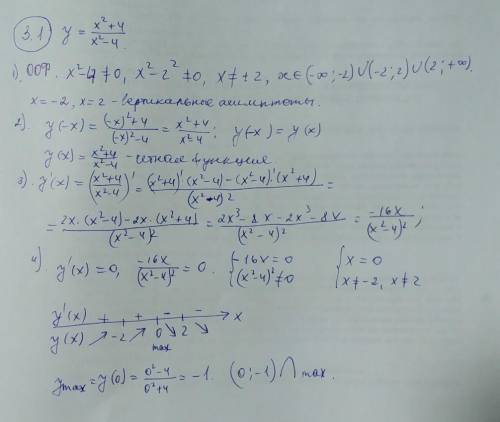 3.1 y = x²+4 / x²-4
1). ООФ. x²-4≠0, x²-2²≠0, x≠±2, x∈(-∞;-2)∪(-2;2)∪(2;+∞).
x=-2, x=2 - вертикальные асимптоты.
2). y(-x) = (-x)²+4 / (-x)²-4 = x²+4 / x²-4; y(-x) = y(x)
y(x) = x²+4 / x²-4 - четная функция
3). y'(x) = (x²+4 / x²-4)' = (x²+4)'(x²-4)-(x²-4)'(x²+4) / (x²-4)² =
= 2x·(x²-4)-2x·(x²+4) / (x²-4)² = 2x³-8x-2x³-8x / (x²-4)² = -16x / (x²-4)²;
4). y'(x)=0, -16x / (x²-4)² = 0. { -16x=0 (x²-4)²≠0 { x=0 x≠-2, x≠2
y'(x) + + - - x
y(x) ↗ -2 ↗ 0 ↘ 2 ↘
max
y max = y(0) = 0²-4 / 0²+4 = -1. (0;-1) ∩ max.